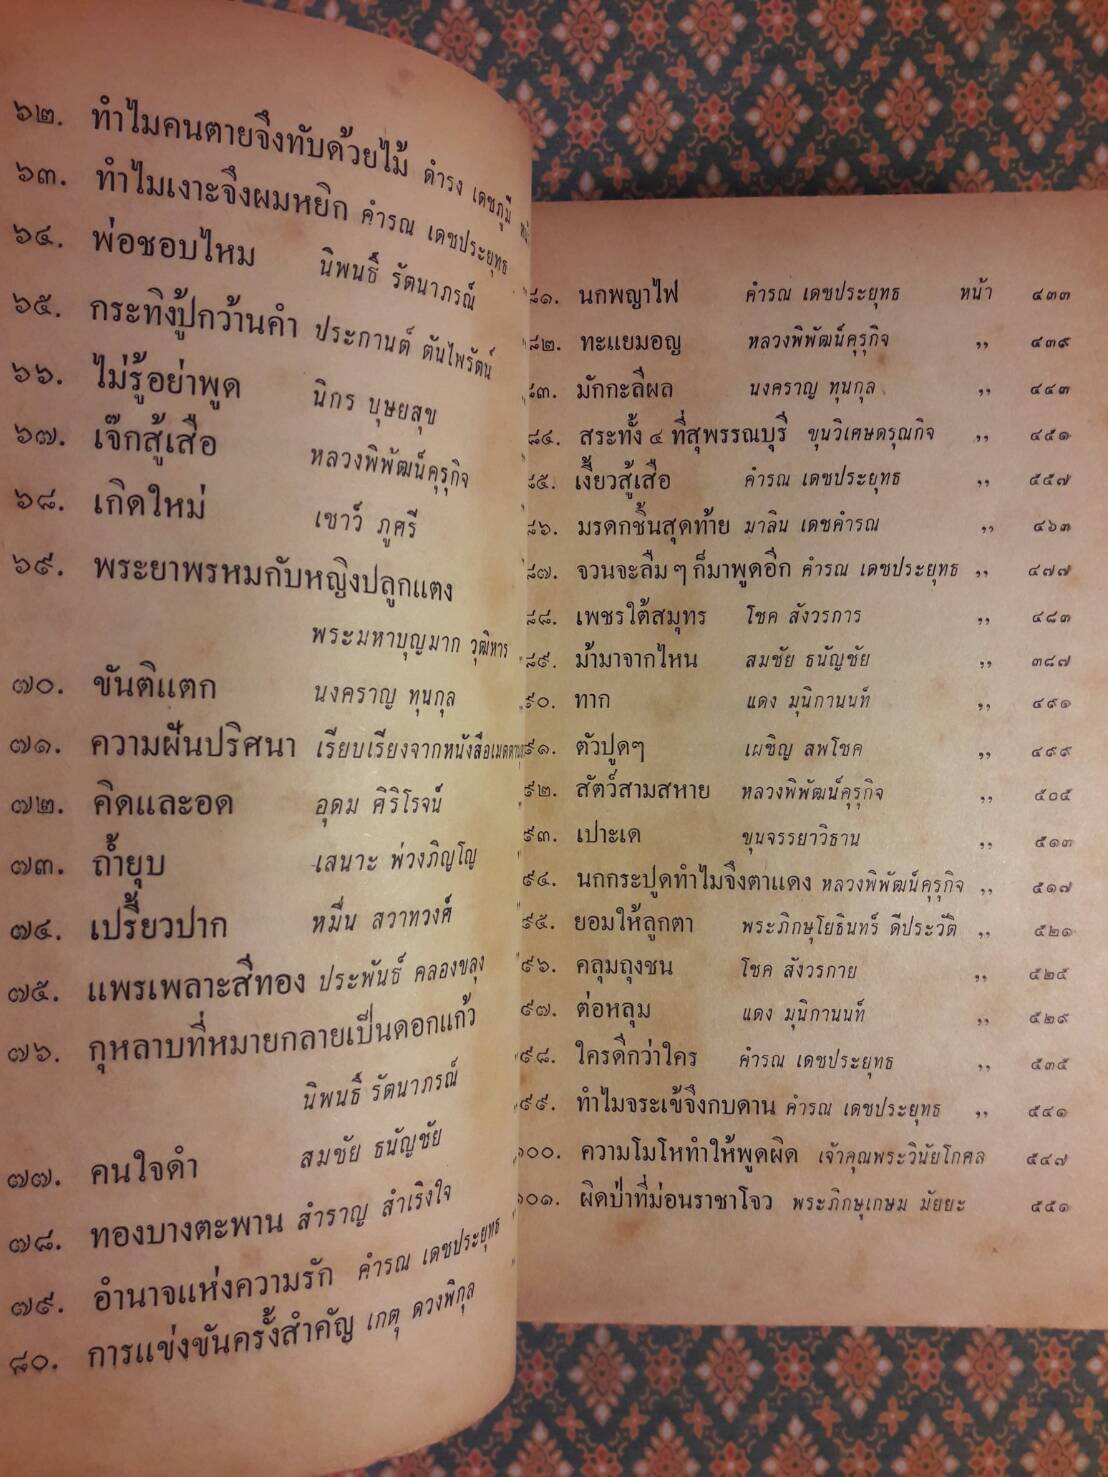 ๖๒. ทำไมคนตายจึงทับด้วยไม้ ดำรง เดชภูมิ
๖๓. ทำไมเงาะจึงผมหยิก คำรณ เดชประยุทธ
๖๔. พ่อชอบไหม นิพนธ์ รัตนาภรณ์
๖๕. กระทิงปู้กว้านคำ ประกานต์ ตันไพรัตน์
๖๖. ไม่รู้อย่าพูด นิกร บุษยสุข
๖๗. เจ๊กสู้เสือ หลวงพิพัฒน์คุรุกิจ
๖๘. เกิดใหม่ เชาว์ ภูศรี
๖๙. พระยาพรหมกับหญิงปลูกแตง
พระมหาบุญมาก วุฒิหาร
๗๐. ขันติแตก นงคราญ ทุนกุล
๗๑. ความฝันปริศนา เรียบเรียงจากหนังสือเมตตา
๗๒. คิดและอด อุดม ศิริโรจน์
๗๓. ถ้ำยุบ เสนาะ พ่วงภิญโญ
๗๔. เปรี้ยวปาก หมื่น สวาทวงศ์
๗๕. แพรเพลาะสีทอง ประพันธ์ คลองขลุง
๗๖. กุหลาบที่หมายกลายเป็นดอกแก้ว
นิพนธ์ รัตนาภรณ์
๗๗. คนใจดำ สมชัย ธนัญชัย
๗๘. ทองบางตะพาน สำราญ สำเริงใจ
๗๙. อำนาจแห่งความรัก คำรณ เดชประยุทธ
๘๐. การแข่งขันครั้งสำคัญ เกตุ ดวงพิกุล
๘๑. นกพญาไฟ คำรณ เดชประยุทธ หน้า ๔๓๓
๘๒. ทะแยมอญ หลวงพิพัฒน์คุรุกิจ ,, ๔๓๙
๘๓. มักกะลีผล นงคราญ ทุนกุล ,, ๔๔๓
๘๔. สระทั้ง ๔ ที่สุพรรณบุรี ขุนวิเศษดรุณกิจ ,, ๔๕๑
๘๕. เงี้ยวสู้เสือ คำรณ เดชประยุทธ ,, ๕๕๗
๘๖. มรดกชิ้นสุดท้าย มาลิน เดชคำรณ ,, ๔๖๓
๘๗. จวนจะลืม ๆ ก็มาพูดอีก คำรณ เดชประยุทธ ,, ๔๗๗
๘๘. เพชรใต้สมุทร โชค สังวรการ ,, ๔๘๓
๘๙. ม้ามาจากไหน สมชัย ธนัญชัย ,, ๓๘๗
๙๐. ทาก แดง มุนิกานนท์ ,, ๔๙๑
๙๑. ตัวปูดๆ เผชิญ สพโชค ,, ๔๙๙
๙๒. สัตว์สามสหาย หลวงพิพัฒน์คุรุกิจ ,, ๕๐๕
๙๓. เปาะเด ขุนจรรยาวิธาน ,, ๕๑๓
๙๔. นกกระปูดทำไมจึงตาแดง หลวงพิพัฒน์คุรุกิจ ,, ๕๑๗
๙๕. ยอมให้ลูกตา พระภิกษุโยธินทร์ ดีประวัติ ,, ๕๒๑
๙๖. คลุมถุงชน โชค สังวรกาย ,, ๕๒๕
๙๗. ต่อหลุม แดง มุนิกานนท์ ,, ๕๒๙
๙๘. ใครดีกว่าใคร คำรณ เดชประยุทธ ,, ๕๓๕
๙๙. ทำไมจระเข้จึงกบดาน คำรณ เดชประยุทธ ,, ๕๔๑
๑๐๐. ความโมโหทำให้พูดผิด เจ้าคุณพระวินัยโกศล ๕๔๗
๑๐๑. ผิดป่าที่ม่อนราชาโจว พระภิกษุเกษม มัยยะ ๕๕๑